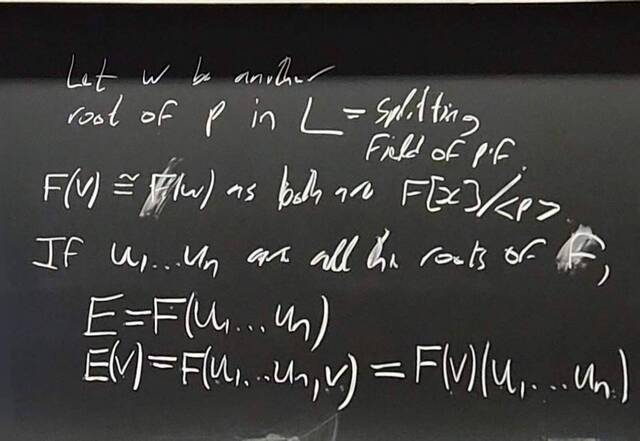 Let w be another
root of p in L = splitting
Field of p·f.
F(v) ≅ F(w) as both are F[x]/<p>.
If u₁...uₙ are all the roots of F,
E=F(u₁...uₙ)
E(v)=F(u₁...uₙ,v) = F(v)(u₁...uₙ)